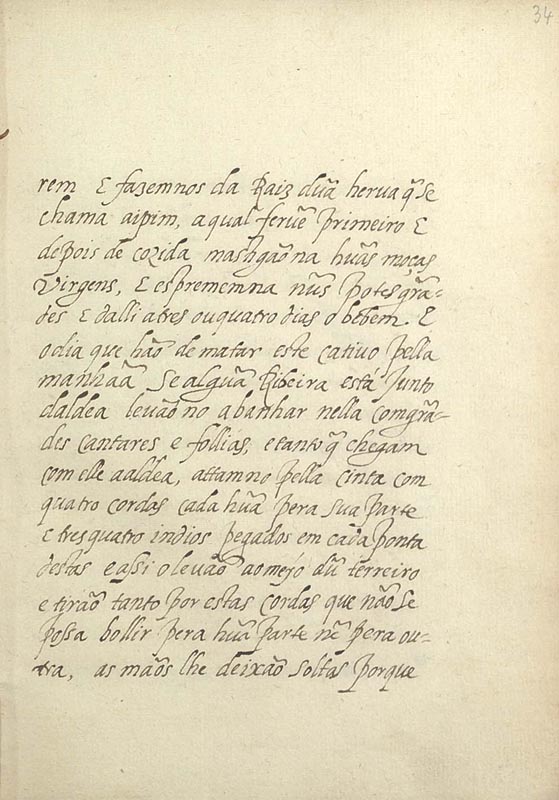 34
rem E fazemnos da Raiz dũa herua q̃ se
chama aipim, a qual feruẽ primeiro E
depois de cozida mastigaõna hũas moças
Virgens, E espremẽmna nũs potes grã-
des E dalli a tres ou quatro dias o bebem. E
o dia que haõ de matar este cativo pella
manhaã se algũa Ribeira está junto
daldea levaõ no a banhar nella com grã-
des cantares e follias, e tanto q̃ chegam
com elle aaldea, attamno pella cinta com
quatro cordas cada hũa pera sua parte
E tres quatro indios pegados em cada ponta
destas e assi o levaõ ao meyo dũ terreiro
e tiraõ tanto por estas cordas que naõ se
possa bollir pera hũa parte nẽ pera ou-
tra, as maõs lhe deixaõ soltas porque